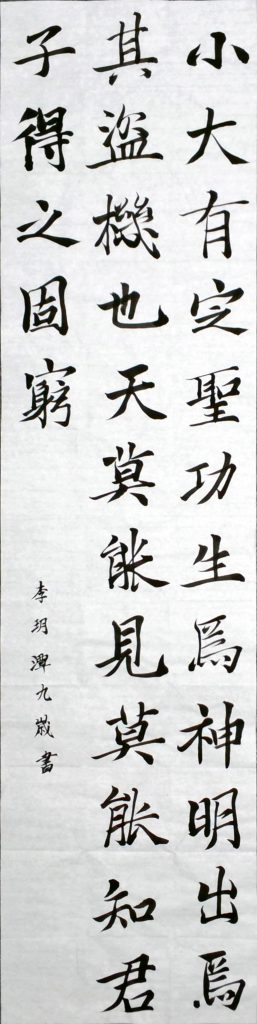 小大有定聖功生焉神明出焉
其盜機也天莫能見莫能知君
子得之固窮
李玥九歲書